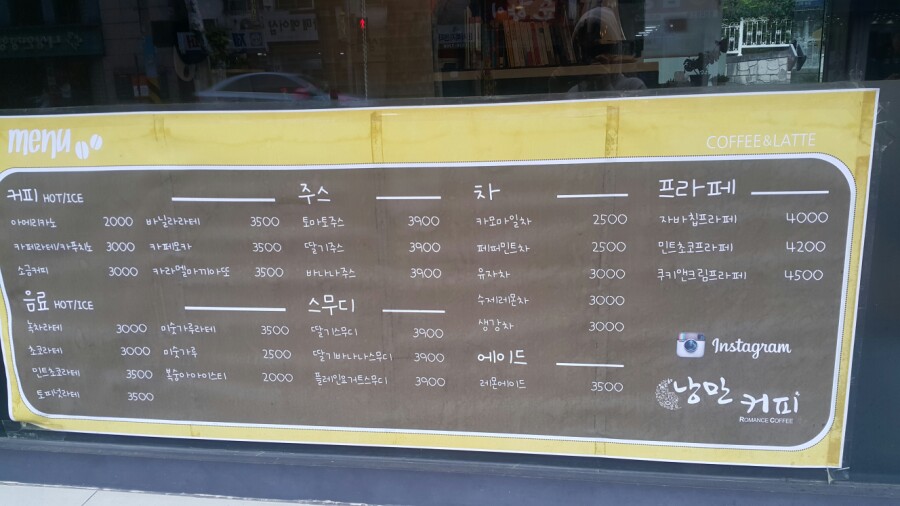 menu
COFFEE&LATTE
커피 HOT/ICE
아메리카노 2000
카페라테/카푸치노 3000
소금커피 3000
바닐라라테 3500
카페모카 3500
카라멜마끼아또 3500
음료 HOT/ICE
녹차라테 3000
초코라테 3000
민트초코라테 3500
토피넛라테 3500
미숫가루라테 3500
미숫가루 2500
복숭아아이스티 2000
주스
토마토주스 3900
딸기주스 3900
바나나주스 3900
스무디
딸기스무디 3900
딸기바나나스무디 3900
플레인요거트스무디 3900
차
카모마일차 2500
페퍼민트차 2500
유자차 3000
수제레몬차 3000
생강차 3000
에이드
레몬에이드 3500
프라페
자바칩프라페 4000
민트초코프라페 4200
쿠키앤크림프라페 4500
Instagram
낭만 커피
ROMANCE COFFEE